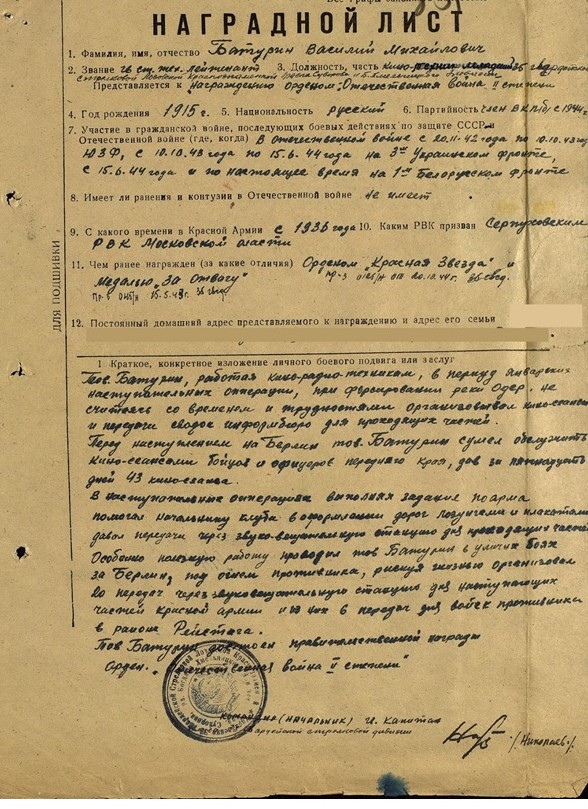 НАГРАДНОЙ ЛИСТ
1. Фамилия, имя, отчество Батурин Василий Михайлович
2. Звание гв. ст. лейтенант 3. Должность, часть кино- 35 гвардейской
стрелковой Лозовской Краснознаменной
Представляется к награждению орденом: "Отечественная война II степени
4. Год рождения 1915 г. 5. Национальность русский 6. Партийность член ВКП(б) с 1944 г.
7. Участие в гражданской войне, последующих боевых действиях по защите СССР и
Отечественной войне (где, когда) В отечественной войне с 20.11-42 года по 10.10.43 года
ЮЗФ, с 10.10.43 года по 15.6.44 года на 3ем Украинском фронте,
с 15.6.44 года и по настоящее время на 1ом Белорусском фронте
8. Имеет ли ранения и контузии в Отечественной войне не имеет
9. С какого времени в Красной Армии с 1936 года 10. Каким РВК призван Серпуховским
РВК Московской области
11. Чем ранее награжден (за какие отличия) Орденом "Красная Звезда" и
Медалью "За отвагу"
12. Постоянный домашний адрес представляемого к награждению и адрес его семьи
ДЛЯ ПОДШИВКИ
1 Краткое, конкретное изложение личного боевого подвига или заслуг
Тов. Батурин, работая кино-радио-техником, в период январских
наступательных операции, при форсировании реки Одер. не
считаясь со временем и трудностями организовывал кино-сеансы
и передачи сводок информбюро для проходящих частей.
Перед наступлением на Берлин тов. Батурин сумел обслужить
кино-сеансами бойцов и офицеров переднего края, дав за пятнадцать
дней 43 кино-сеанса.
В наступательных операциях выполняя задание поарма
помогал начальнику клуба в оформлении дорог лозунгами и плакатами
давал передачи через звуко-вещательную станцию для проходящих частей
Особенно полезную работу проводил тов Батурин в уличных боях
за Берлин, под огнем противника, рискуя жизнью организовал
20 передач через звуковещательную станцию для наступающих
частей красной армии и из них 6 передач для войск противника
в районе Рейстага.
Тов Батурин достоен правительственной награды
Орден. "Отечественная война II степени"
Командир (начальник) гв. капитан
гвардейской стрелковой дивизии
/Николаев/